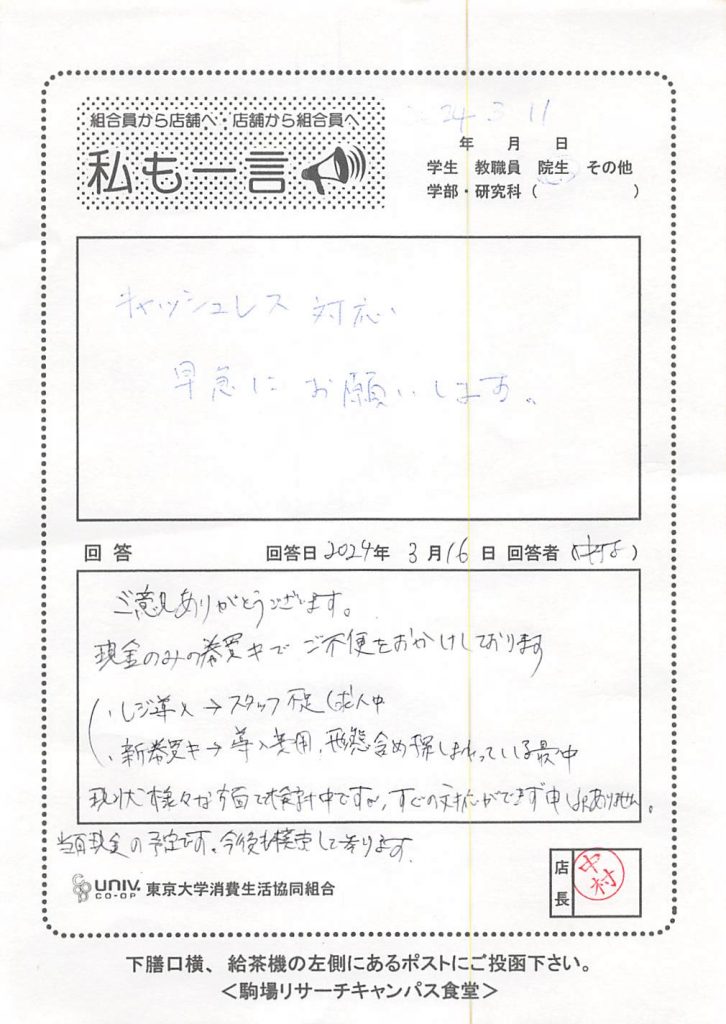 組合員から店舗へ・店舗から組合員へ
私も一言
2024.3.11
年 月 日
学生 教職員 院生 その他
学部・研究科（ ）
キャッシュレス 対応
早急に お願いします。
回答 回答日2024年 3月16日 回答者（中村）
ご意見ありがとうございます。
現金のみの券買キで ご不便をおかけしております
・レジ導入→スタッフ不足 求人中
・新券買キ→導入費用、形態含め探しまわっている最中
現状 様々な方面で検討中ですが、すぐの対応ができず申し訳ありません。
当面現金の予定です。今後も模索して参ります。
UNIV. CO-OP 東京大学消費生活協同組合
店長 中村
下膳口横、給茶機の左側にあるポストにご投函下さい。
＜駒場リサーチキャンパス食堂＞